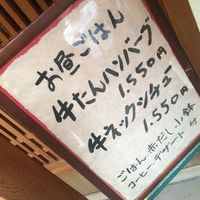 お昼ごはん
牛たんハンバーグ
1.550円
牛ネックシチュー
1.550円
ごはん.赤だし.小鉢付
コーヒー.デザート